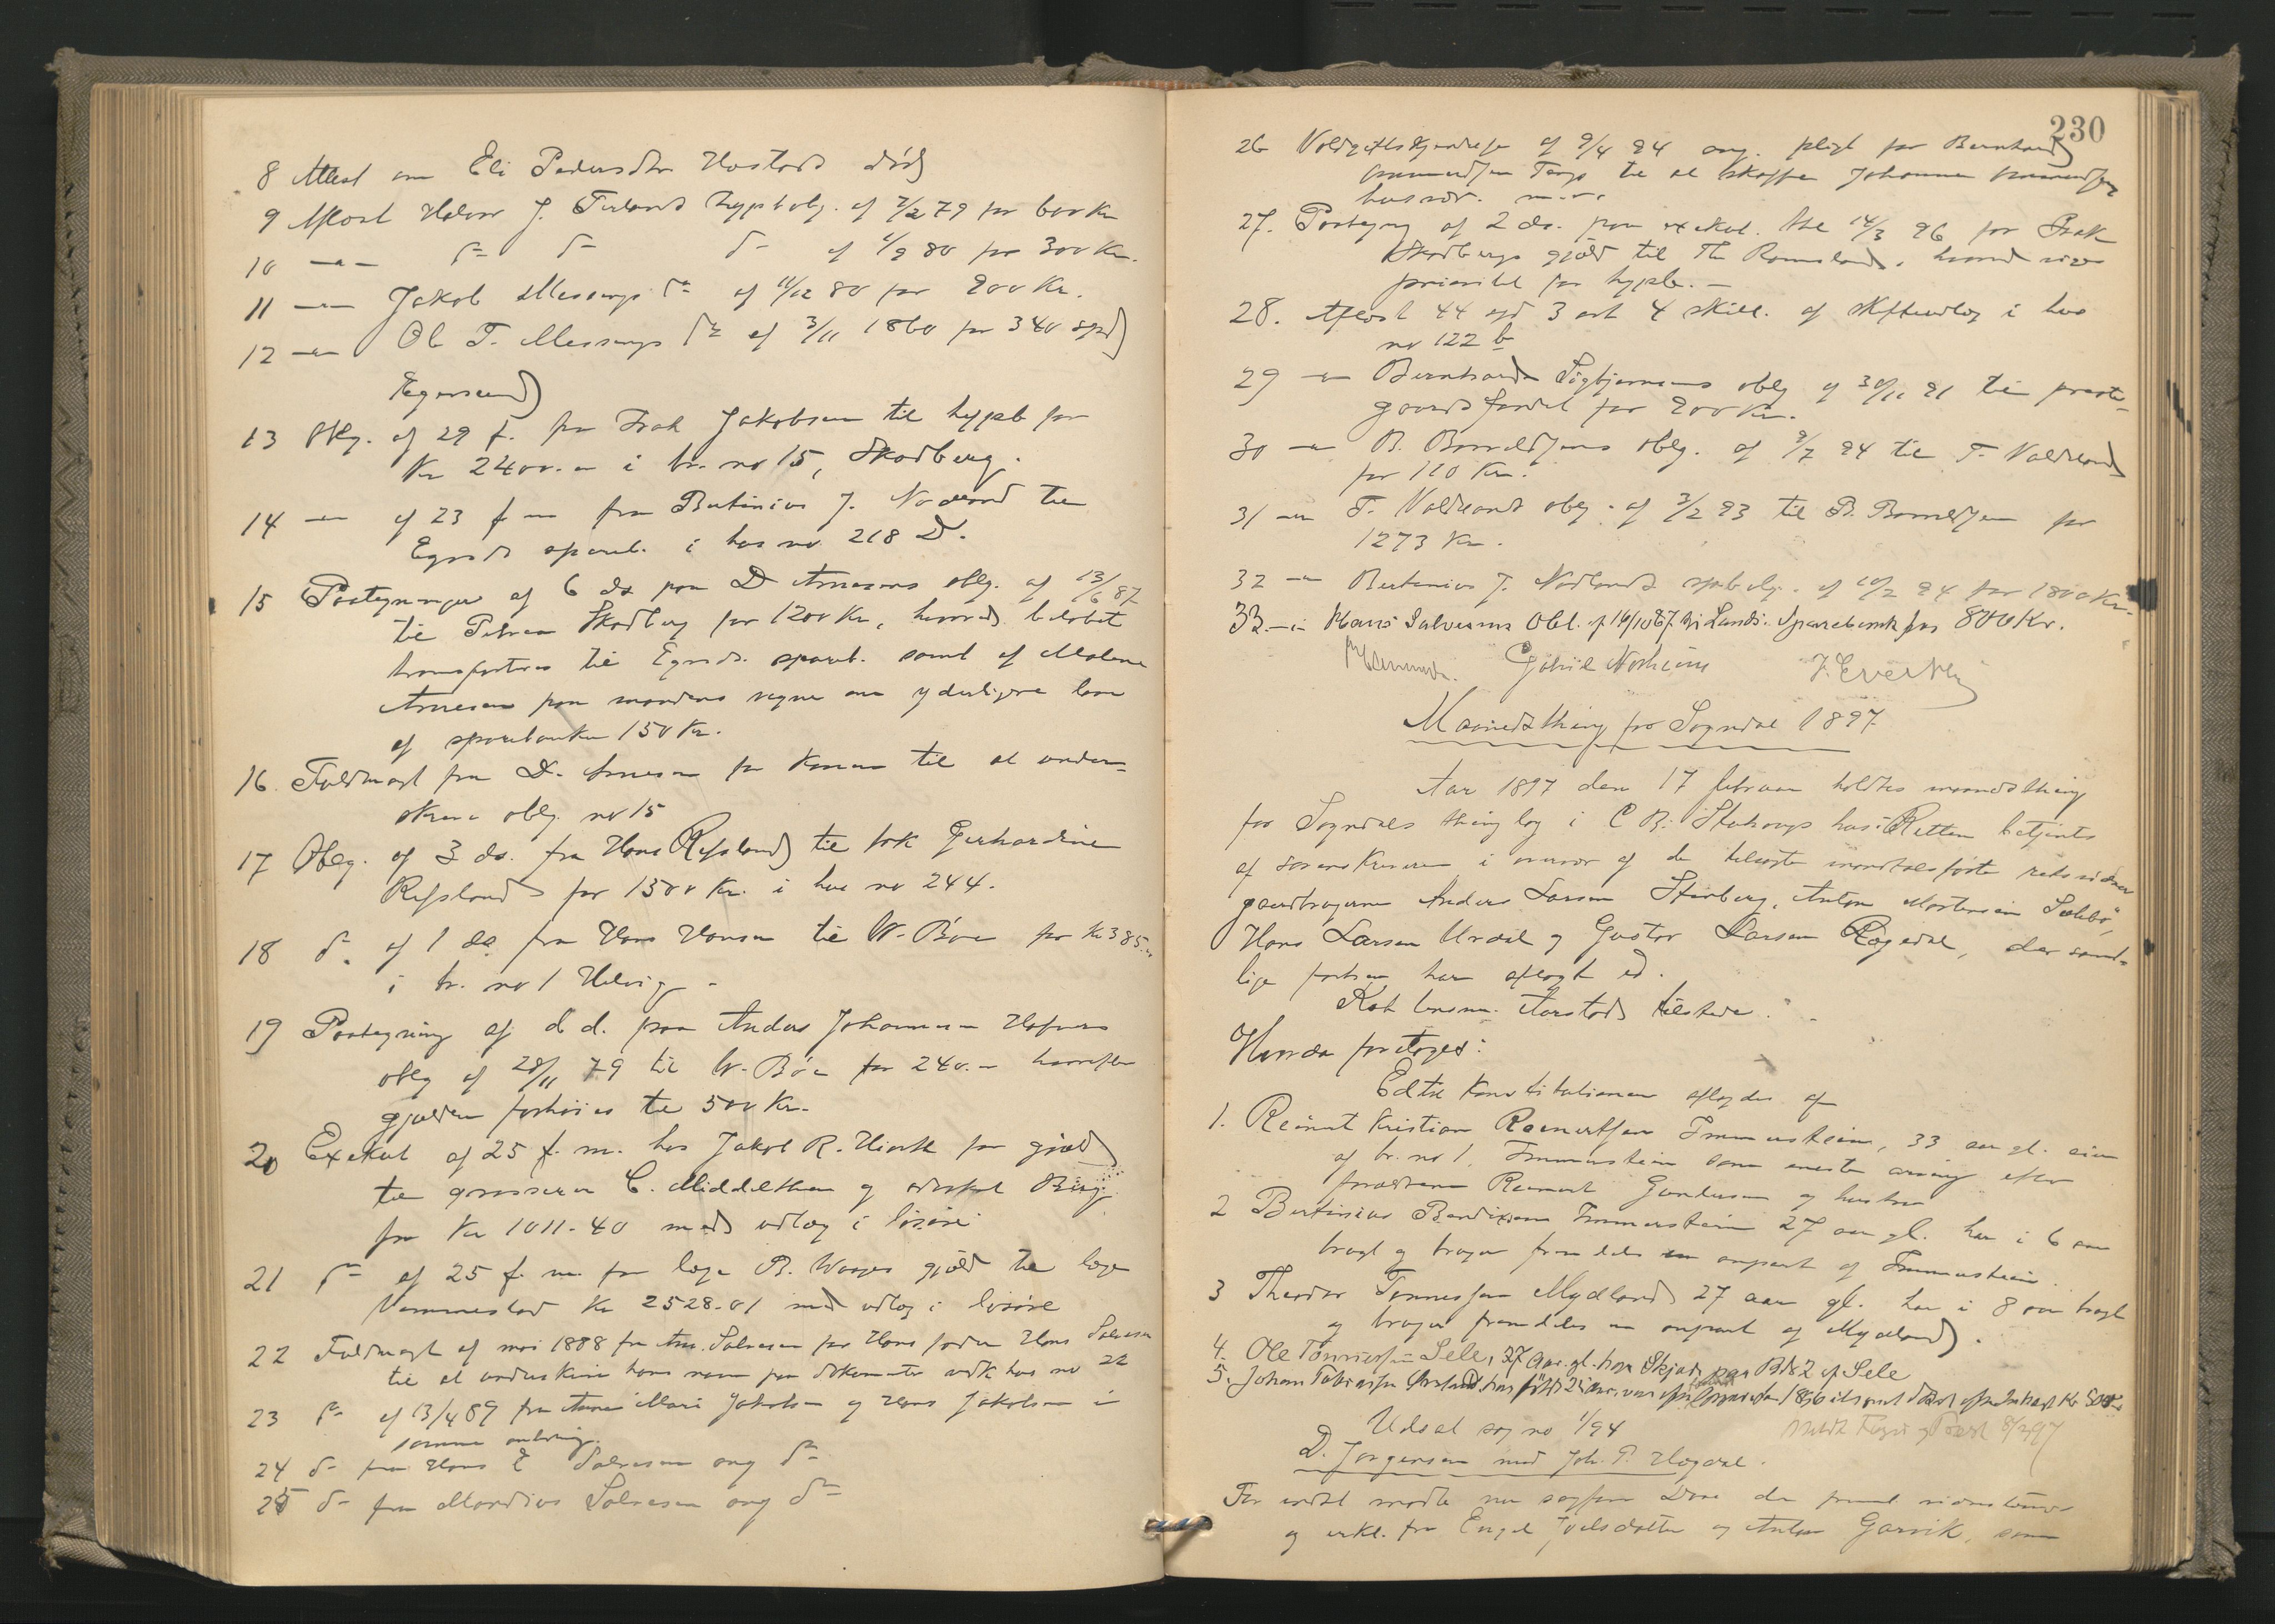 8 Attest om Eli Pedersdtr Hovstads død
9 Aflæst Halvor J. Foslands hypth obl. af 7/2 79 for 600 Kr
10 — " — do do do af 1/9 80 for 300 Kr.
11 — " — Jakob Mesongs do af 11/12 80 for 200 Kr.
12 — " — Ole T. Messongs do af 3/11 1860 for 340 spd
Egersund
13 Obg. af 29 f. fra Isak Jakobsen til hypb for
Kr 2400.- i br. no 15, Skadberg.
14 — " — af 23 f m fra Bertinius J. Nodland til
Egrsds spareb. i hus no. 218 D.
15 Paategninger af 6 ds paa D Arnesens oblg. af 13/6 87
til Petrea Skadberg for 1200 Kr, hvorved beløbet
transporteres til Egrsds. spareb. samt af Malene
Arnesen paa mandens vegne om yderligere laan
af sparebanken 150 Kr.
16. Fuldmagt fra D. Arnesen for konen til at under-
skrive oblg. no 15
17 Oblg. af 3 ds. fra Hans Refsland til frk Gerhardine
Refsland for 1500 Kr. i hus no 244.
18 do. af 1 ds fra Hans Hansen til W. Bøe for Kr 385.-
i br. no 1 Helvig -
19 Paategning af d d. paa Anders Johannesen Hafsøes
oblg af 28/11 79 til W. Bøe for 240.- hvorefter
gjælden forhøies til 500 Kr.
20 Exekut af 25 f. m. hos Jakob R. Hiorth for gjæld
til grosserer C. Middelthon og advokat Berg
for Kr 1011.40 med udlæg i løsøre
21 do af 25 f. m. for læge B. Waages gjæld til læge
Vemmestad Kr 2528.01 med udlæg i løsøre
22 Fuldmagt af mai 1888 fra Ane Salvesen for Hans fader Hans Salvesen
til at underskrive hans navn paa dokumenter vedk hus no 22
23 do af 13/4 89 fra Anne Mari Jakobsen og Hans Jakobsen i
samme anledning.
24 do fra Hans E Salvesen ang do
25 do fra Mardius Salvesen ang do
230
26 Voldgiftskjendelse af 9/4 94 ang. pligt for Bernhard
Gummundsen Tengs til at skaffe Johanne
husvær. m. v.
27. Paategng af 2 ds. paa exekut. the 14/3 96 for Isak
Skadbergs gjæld til Th Romslands, hvorved vises
prioritet for hypbk. —
28. Aflæst 44 spd 3 ort 4 skill. af skifteudlæg i hus
no 122 b
29 — " — Bernhards Sigbjørnsens oblg af 30/11 91 til præste-
gaardsfondet for 200 Kr.
30 — " — B. Bornildsens oblg. af 9/7 94 til T. Valdeland
for 110 Kr.
31 — " — T. Valdelands oblg. af 3/2 93 til B. Bornildsen for
1273 Kr.
32 — " — Bertinius J. Nodlands spb oblg. af 10/2 94 for 1800 Kr.
33. — " — Hans Salvesens Obl. af 16/10 87 til Lands. Sparebank for 800 Kr.
Gabriel Norheim
Maanedsthing for Sogndal 1897
Aar 1897 den 17 februar holdtes maanedsthing
for Sogndals thinglag i C B. Stakongs hus. Retten betjentes
af sorenskriveren i overvær af de tilsagte mandtalsførte retsvidner
gaardbrugerne Anders Larsen Steinberg, Anton Mortensen Sælebø,
Hans Larsen Urdal og Gustav Larsen Rægedal, der samt-
lige forhen har aflagt ed.
Kst lensm. Aarstad tilstede.
Hvorda foretoges:
Ed til Konstitutionen aflagdes af
1. Reinert Kristian Reinertsen Immerstein, 33 aar gl. eier
af br. no 1. Immerstein som eneste arving efter
forældrene Reinert Gundersen og hustru
2 Bertinius Berdinesen Immerstein 27 aar gl. har i 6 aar
brugt og bruger fremdeles en anpart af Immerstein.
3 Theodor Tønnessen Mydland 27 aar gl. har i 8 aar brugt
og bruger fremdeles en anpart af Mydland.
4. Ole Tønnessen Sele, 37 aar. gl. har Skjøde paa B No 2 af Sele
5. Johan Tobiassen
Udsat sag no 1/94
D. Jørgensen mod Joh. P. Hogdal.
For indst mødte nu sagfører Dare der fremla vidnetingsv
og erkl. fra Engel Joelsdatter og Anton Garvik, som